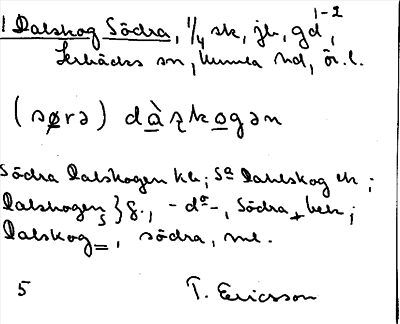 1 Dalskog Södra, 1/4 sk, jb, gd 1-2,
Lerbäcks sn, Kumla hd, Ör. l.
(søra) dàzkogən
Södra Dalskogen kk; Sa Dahlskog ek;
Dalskogen }g., - do -, Södra + bek;
Dalskog =, södra, ml.
5 T. Ericsson